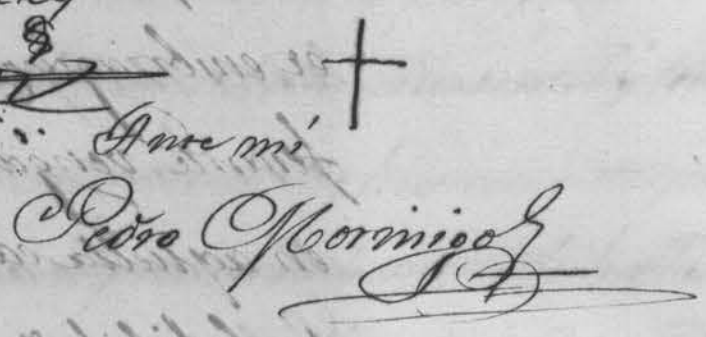 Ante mi
Pedro Morinigo